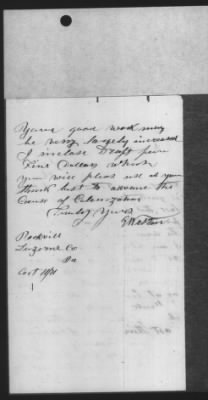 Your good work may
be very largely increased
I inclose Draft for
Five Dollars which
you will please use as you
think best to advance the
Cause of Colonization
Truly Yours

Luzerne Co.
Pa
Oct